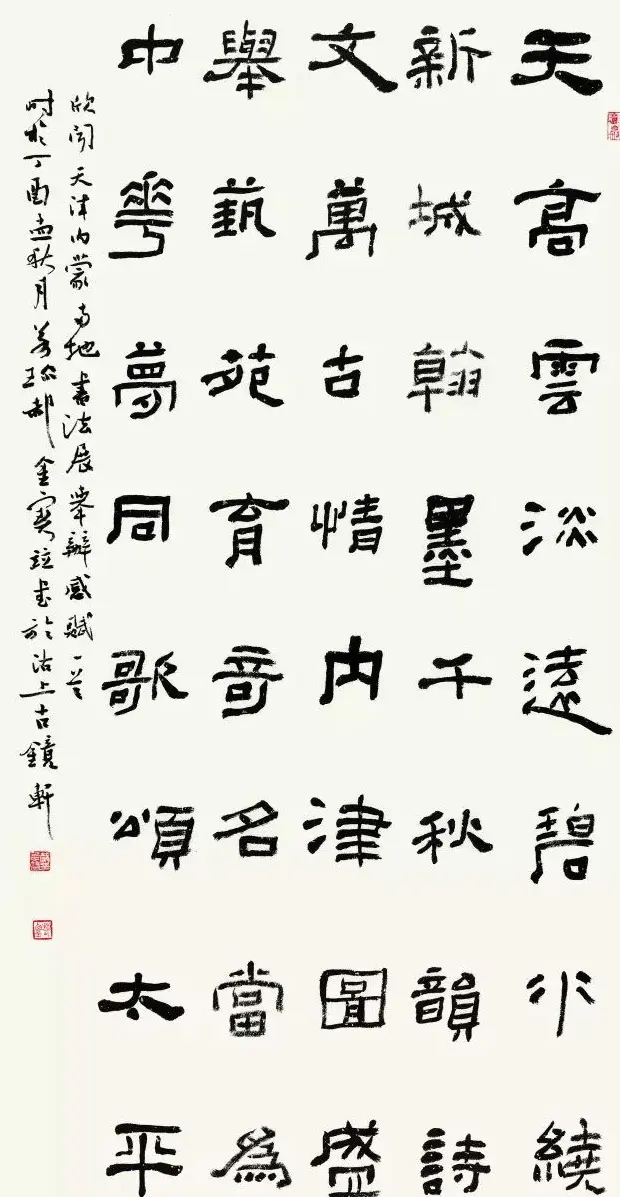 天高雲淡遠碧水繞
新城翰墨千秋韻詩
文萬古情内津圖盛
舉藝苑育奇名當為
中華夢同歌頌太平
欣聞天津内蒙兩地書法展舉辦感賦一首
時於丁酉孟秋月郝金寶並書於沽上古鏡軒